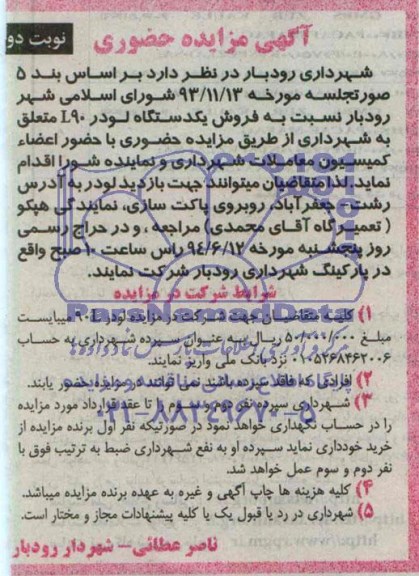 آگهی مزایده حضوری
نوبت دو
شهرداری رودبار در نظر دارد بر اساس بند ۵
صورتجلسه مورخه ۹۳/۱۱/۱۳ شورای اسلامی شهر
رودبار نسبت به فروش یکدستگاه لودر L۹۰ متعلق
به شهرداری از طریق مزایده حضوری با حضور اعضاء
کمیسیون معاملات شهرداری و نماینده شورا اقدام
نماید. لذا متقاضیان میتوانند جهت بازدید لودر به آدرس
رشت - جعفرآباد روبروی پاکت سازی، نمایندگی هپکو
( تعمیرگاه آقای محمدی) مراجعه ، و در حراج رسمی
روز پنجشنبه مورخه ۹۴/۶/۱۲ راس ساعت ۱۰ صبح واقع
در پارکینگ شهرداری رودبار شرکت نمایند.
شرایط شرکت در مزایده
۱) کلیه متقاضیان جهت شرکت در مزایده لودر L۹۰ میبایست
مبلغ ۵۰/۰۰۰/۰۰۰ ریال به عنوان سپرده شهرداری به حساب
۰۱۰۵۲۶۸۴۶۲۰۰۶ نزد بانک ملی واریز نمایند.
۲) افرادی که فاقد سپرده باشند نمی توانند در مزایده حضور یابند.
۳) شهرداری سپرده نفر دوم و سوم را تا عقد قرارداد مورد مزایده
را در حساب نگهداری خواهد نمود در صورتیکه نفر اول برنده مزایده از
خرید خودداری نماید سپرده او به نفع شهرداری ضبط به ترتیب فوق با
نفر دوم و سوم عمل خواهد شد.
۴) کلیه هزینه ها چاپ آگهی و غیره به عهده برنده مزایده میباشد.
۵) شهرداری در رد یا قبول یک یا کلیه پیشنهادات مجاز و مختار است.
ناصر عطائی – شهردار رودبار
ParsNamadData
۰۲۱-۸۸۳۴۹۶۷۰-۵